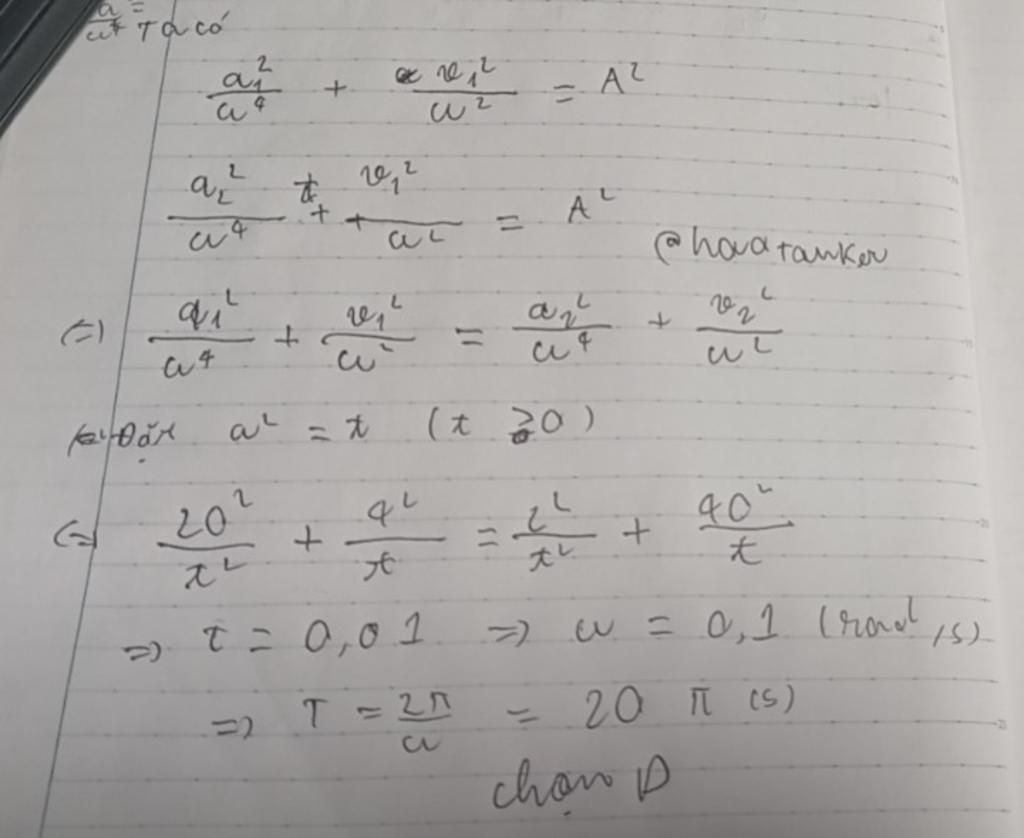 Ta có
a₁²/ω⁴ + v₁²/ω² = A²
a₂²/ω⁴ + v₁²/ω² = A²
@hoatanker
(=) a₁²/ω⁴ + v₁²/ω² = a₂²/ω⁴ + v₂²/ω²
Đặt ω² = t (t ≥ 0)
(=) 20²/t² + 4²/t = 2²/t² + 40²/t
=> t = 0,01 => ω = 0,1 (rad/s)
=> T = 2π/ω = 20 π (s)
chọn D